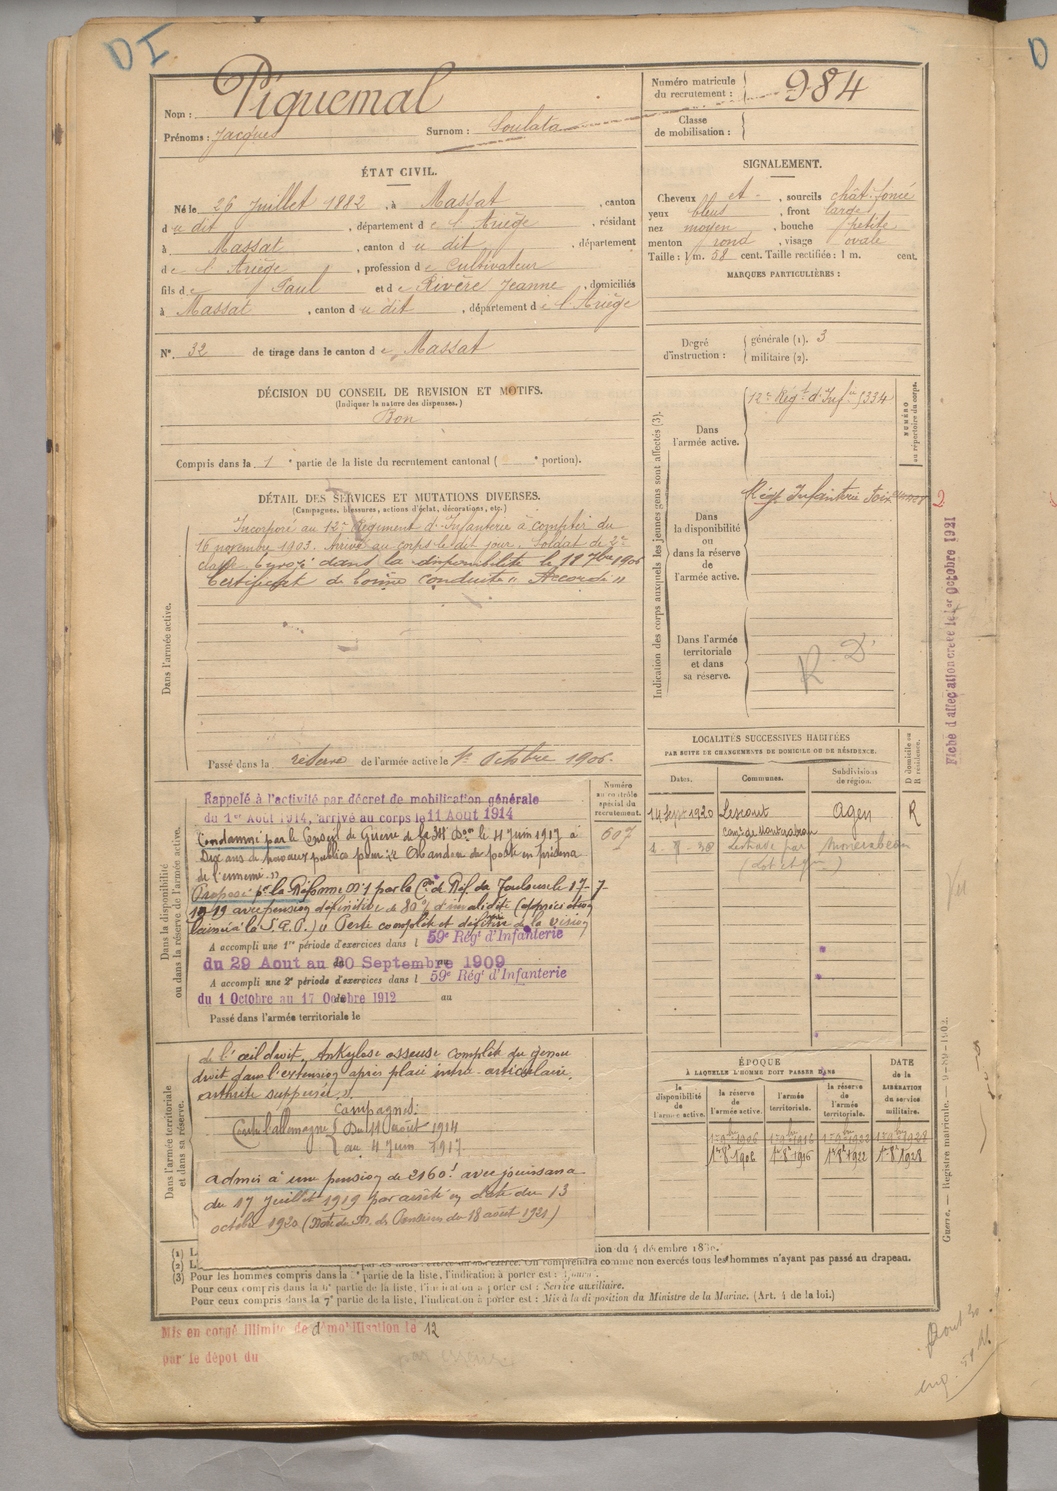 DI
Nom : Piquemal
Prénoms : Jacques Surnom : Soulata
Numéro matricule du recrutement : 984
Classe de mobilisation :
ÉTAT CIVIL.
Né le 26 juillet 1882, à Massat, canton
du dit, département de l'Ariège, résidant
à Massat, canton du dit, département
de l'Ariège, profession de Cultivateur
fils de Paul et de Rivère Jeanne, domiciliés
à Massat, canton du dit, département de l'Ariège
N° 32 de tirage dans le canton de Massat
SIGNALEMENT.
Cheveux et -, sourcils chât. foncé
yeux bleus, front large
nez moyen, bouche petite
menton rond, visage ovale
Taille : 1 m. 58 cent. Taille rectifiée : 1 m. cent.
MARQUES PARTICULIÈRES :
Degré d'instruction : générale (1). 3
militaire (2).
DÉCISION DU CONSEIL DE REVISION ET MOTIFS.
(Indiquer la nature des dispenses.)
Bon
Compris dans la 1e partie de la liste du recrutement cantonal ( e portion).
DÉTAIL DES SERVICES ET MUTATIONS DIVERSES.
(Campagnes, blessures, actions d'éclat, décorations, etc.)
Dans l'armée active.
Incorporé au 12e Régiment d'Infanterie à compter du
16 novembre 1903. Arrivé au corps le dit jour. Soldat de 2e
classe. Envoyé dans la disponibilité le 18 7bre 1906
Certificat de bonne conduite "Accordé"
Passé dans la réserve de l'armée active le 1er Octobre 1906.
Indication des corps auxquels les jeunes gens sont affectés (3).
NUMÉRO au répertoire du corps.
Dans l'armée active.
12e Régt d'Infie 5334
Dans la disponibilité ou dans la réserve de l'armée active.
Régt Infanterie Foix
Dans l'armée territoriale et dans sa réserve.
R. D.
2
Fiche d'affectation créée le 1er Octobre 1921
LOCALITÉS SUCCESSIVES HABITÉES
PAR SUITE DE CHANGEMENTS DE DOMICILE OU DE RÉSIDENCE.
Dates. Communes. Subdivisions de région. D domicile ou R résidence.
14 Sept 1920 Lescout Agen R
Dans la disponibilité ou dans la réserve de l'armée active.
Numéro au contrôle spécial du recrutement.
607
Rappelé à l'activité par décret de mobilisation générale
du 1er Aout 1914, arrivé au corps le 11 Aout 1914
Condamné par le Conseil de Guerre de la 34e Don le 4 juin 1917 à
Dix ans de travaux publics pour "Abandon de poste en présence
de l'ennemi."
Proposé pr la Réforme N°1 par la Con de Réf. de Toulouse le 17-7-
1919 avec pension définitive de 80% d'invalidité (appréciation
laissée à la S.C.P.) "Perte complète et déftive de la vision
A accompli une 1re période d'exercices dans l 59e Régt d'Infanterie
du 29 Aout au 20 Septembre 1909
A accompli une 2e période d'exercices dans l 59e Régt d'Infanterie
du 1 Octobre au 17 Octobre 1912 au
Passé dans l'armée territoriale le
Dans l'armée territoriale et dans sa réserve.
de l'œil droit. Ankylose osseuse complète du genou
droit dans l'extension après plaie intra-articulaire,
arthrite suppurée".
Campagnes :
Contre l'allemagne Du 11 août 1914
au 4 Juin 1917
Admis à une pension de 2160f avec jouissance
du 17 juillet 1919 par arrêté en date du 13
octobre 1920 (Note du M. des Pensions du 18 août 1921)
ÉPOQUE
À LAQUELLE L'HOMME DOIT PASSER DANS
DATE de la LIBÉRATION du service militaire.
la disponibilité de l'armée active. la réserve de l'armée active. l'armée territoriale. la réserve de l'armée territoriale.
1er 9bre 1906 1er 9bre 1916 1er 9bre 1922 1er 9bre 1928
1er 8e 1906 1er 8e 1916 1er 8e 1922 1er 8e 1928
(1) L
(2) L
(3) Pour les hommes compris dans la e partie de la liste, l'indication à porter est :
Pour ceux compris dans la partie de la liste, l'indication à porter est : Service auxiliaire.
Pour ceux compris dans la 7e partie de la liste, l'indication à porter est : Mis à la disposition du Ministre de la Marine. (Art. 4 de la loi.)
Mis en congé illimité de démobilisation le 12
par le dépôt du
par erreur
Guerre. — Registre matricule. — 9-89-1902.